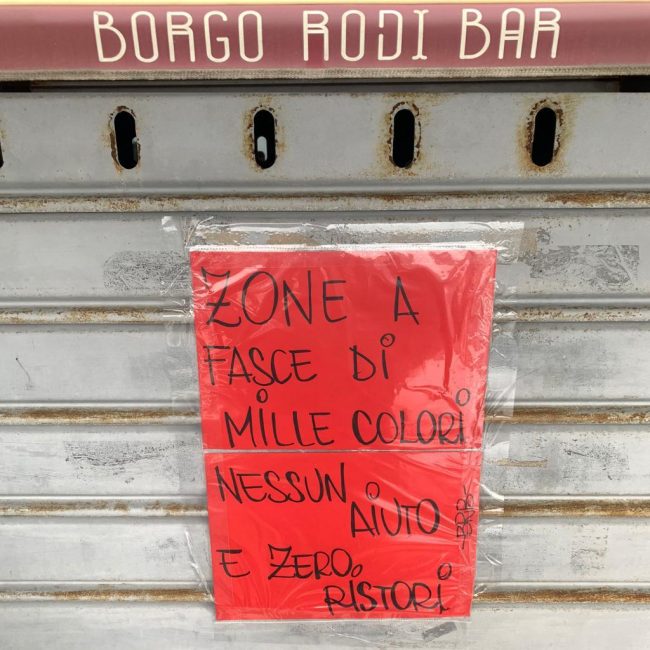 BORGO RODI BAR
ZONE A
FASCE DI
MILLE COLORI
NESSUN
AIUTO
E ZERO
RISTORI